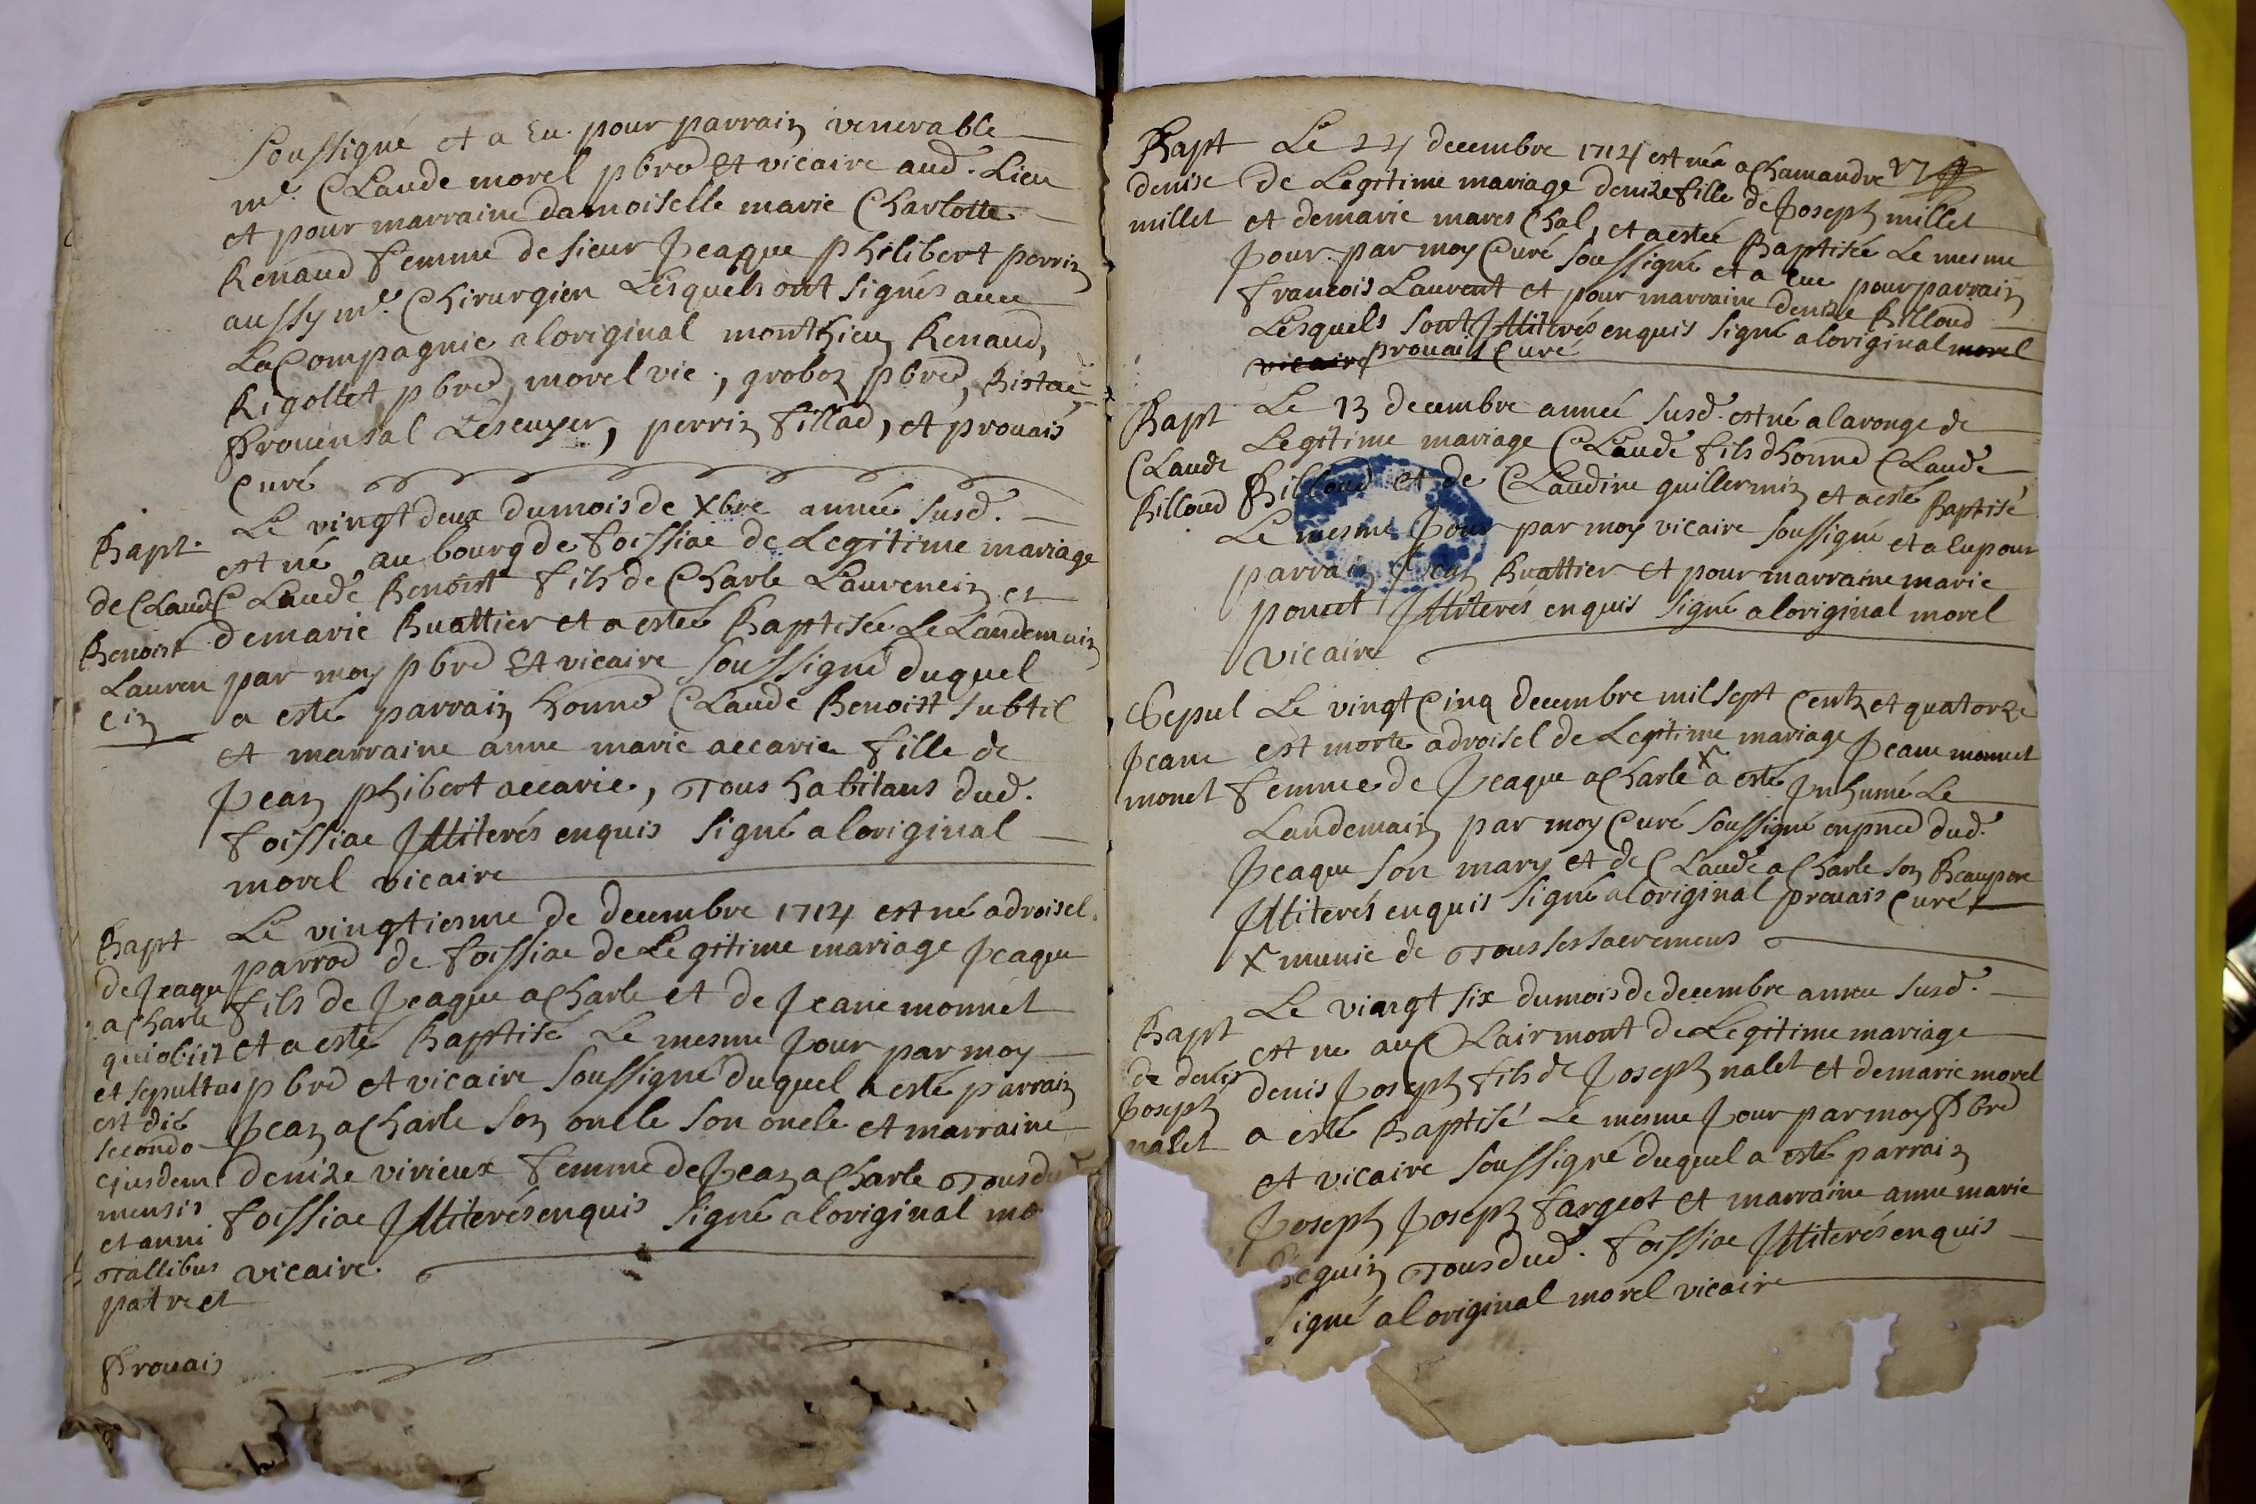 soussigné et a Eu pour parrain venerable
me. Claude morel pbrë et vicaire aud. Lieu
et pour marraine damoiselle marie Charlotte
Renaud femme de sieur Jeaque philibert perrin
aussy me. Chirurgien Lesquels ont signés avec
La Compagnie a loriginal monthieu, Renaud,
Rigollet pbrë, morel vic., groboz pbrë,
Prouensal Lescuyer, perrin fillad, et prouais
Curé
Bapt. de Claude Benoist Laurencin
Le vingt deux du mois de Xbre année susd.
est né au bourg de foissiac de Legitime mariage
Claude Benoist fils de Charle Laurencin et
de marie Buattier et a estée Baptisée Le Landemain
par moy pbrë et vicaire soussigné duquel
a esté parrain honnë Claude Benoist subtil
et marraine anne marie accarie fille de
Jean phibert accarie, Tous habitans dud.
foissiac Illiterés enquis signé a loriginal
morel vicaire
Bapt de Jeaque a Charle qui obiit et sepultus est die secondo ejusdem mensis et anni Tallibus patr et
Prouais
Le vingtiesme de decembre 1714 est né a droisel
parroë de foissiac de Legitime mariage Jeaque
fils de Jeaque a Charle et de Jeane monnet
et a esté Baptisé Le mesme Jour par moy
pbrë et vicaire soussigné duquel a esté parrain
Jean a Charle son onlle son oncle et marraine
denize virieux femme de Jean a Charle Tous du
foissiac Illiterés enquis signé a loriginal mo
vicaire
Bapt denise millet
Le 24 decembre 1714 est née a Chamandre
de Legitime mariage denize fille de Joseph millet
et de marie mareschal, et a estée Baptisée Le mesme
Jour par moy Curé soussigné et a Eue pour parrain
francois Laurent et pour marraine denize Billoud
Lesquels sont Illiterés enquis signé a loriginal morel
vicaire prouais Curé
Bapt Claude Billoud
Le 13 decembre année susd. est né a laronge de
Legitime mariage Claude fils dhonnë Claude
Billoud et de Claudine guillermin et a esté Baptisé
Le mesme Jour par moy vicaire soussigné et a Eu pour
parrain Jean Buattier et pour marraine marie
poncet Illiterés enquis signé a loriginal morel
vicaire
Sepul Jeane monet
Le vingt Cinq decembre mil sept Centz et quatorze
est morte a droisel de Legitime mariage Jeane monnet
femme de Jeaque a Charle X a esté Inhumé Le
Landemain par moy Curé soussigné en pncë dud.
Jeaque son mary et de Claude a Charle son Beaupere
Illiterés enquis signé a loriginal prouais Curé
X munie de Tous ses sacremens
Bapt de denis Joseph nalet
Le viangt six du mois de decembre année susd.
est né au Clairmont de Legitime mariage
denis Joseph fils de Joseph nalet et de marie morel
a esté Baptisé Le mesme Jour par moy Pbrë
et vicaire soussigné duquel a esté parrain
Joseph Joseph fargeot et marraine anne marie
seguin Tous dud. foissiac Illiterés enquis
signé a loriginal morel vicaire